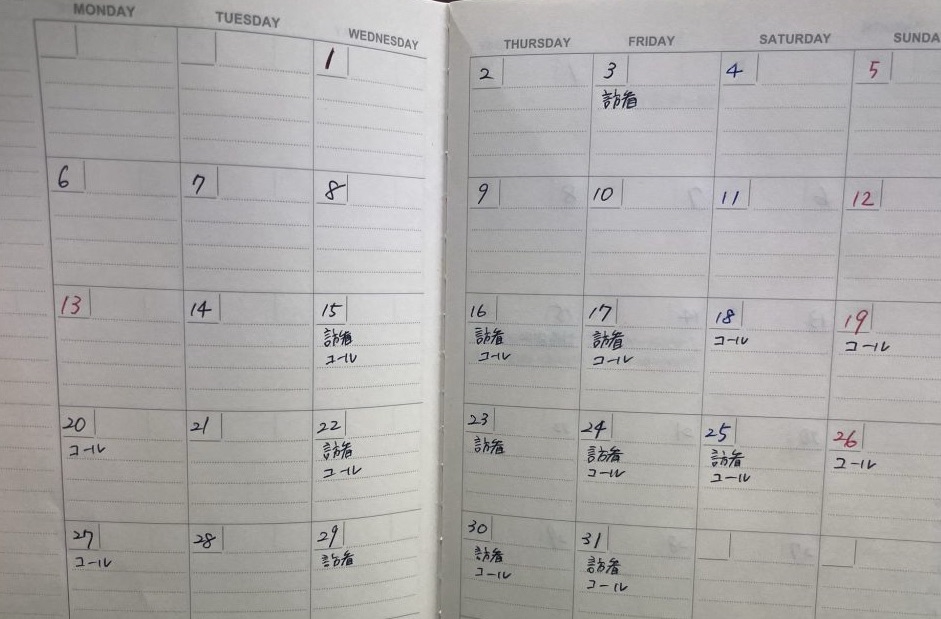 MONDAY
TUESDAY
WEDNESDAY
THURSDAY
FRIDAY
SATURDAY
SUNDA
1
2
3
訪看
4
5
6
7
8
9
10
11
12
13
14
15
訪看
コール
16
訪看
コール
17
訪看
コール
18
コール
19
コール
20
コール
21
22
訪看
コール
23
訪看
24
訪看
コール
25
訪看
コール
26
コール
27
コール
28
29
訪看
30
訪看
コール
31
訪看
コール